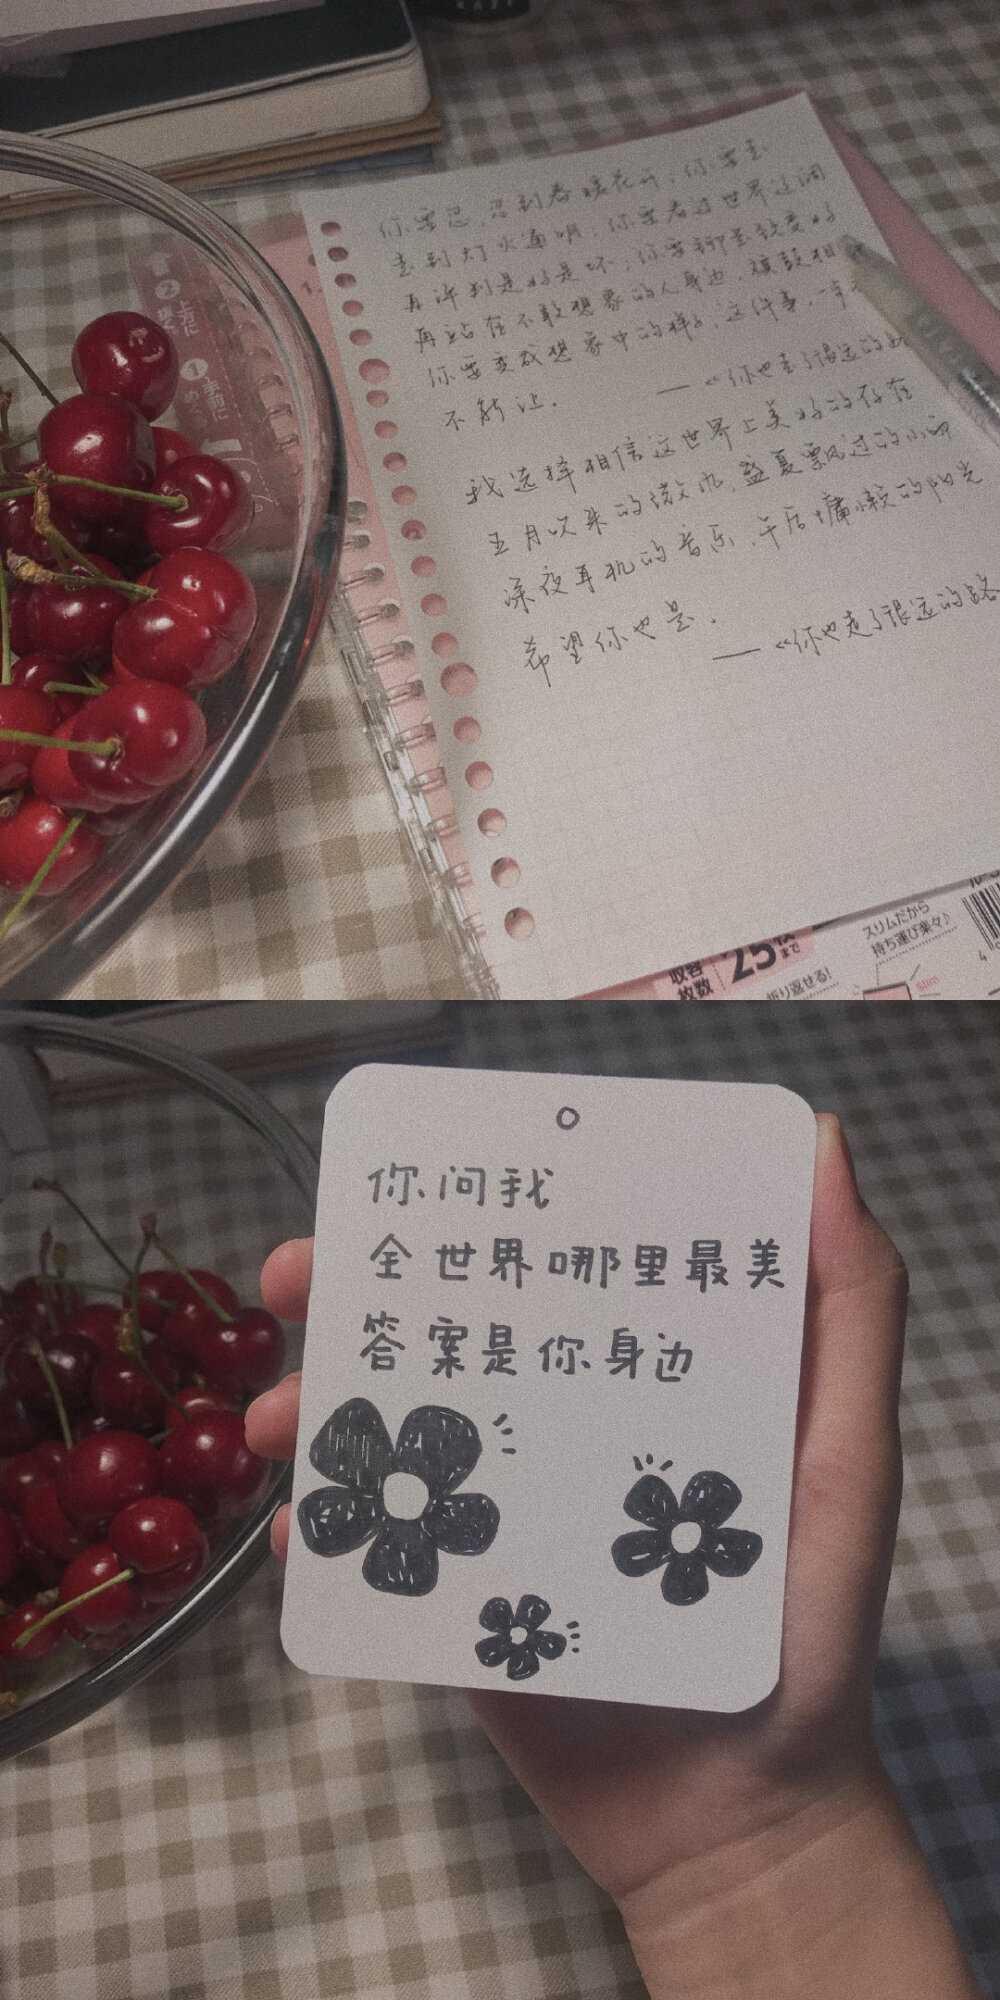 你要忍，忍到春暖花开；你要走
走到灯火通明；你要看过世界辽阔
再评判是好是坏；你要铆足劲变好
再站在不敢想象的人身边，旗鼓相
你要变成想象中的样子，这件事，一步
不能让．
——《你也走了很远的
我选择相信这世界上美好的存在
五月吹来的微风，盛夏飘过的小雨
深夜耳机的音乐，午后慵懒的阳光
希望你也是．
——《你也走了很远的路
②
①
収容
枚数
25枚
まで
折り返せる!
スリムだから
持ち運び楽々♪
Slim
4
你问我
全世界哪里最美
答案是你身边